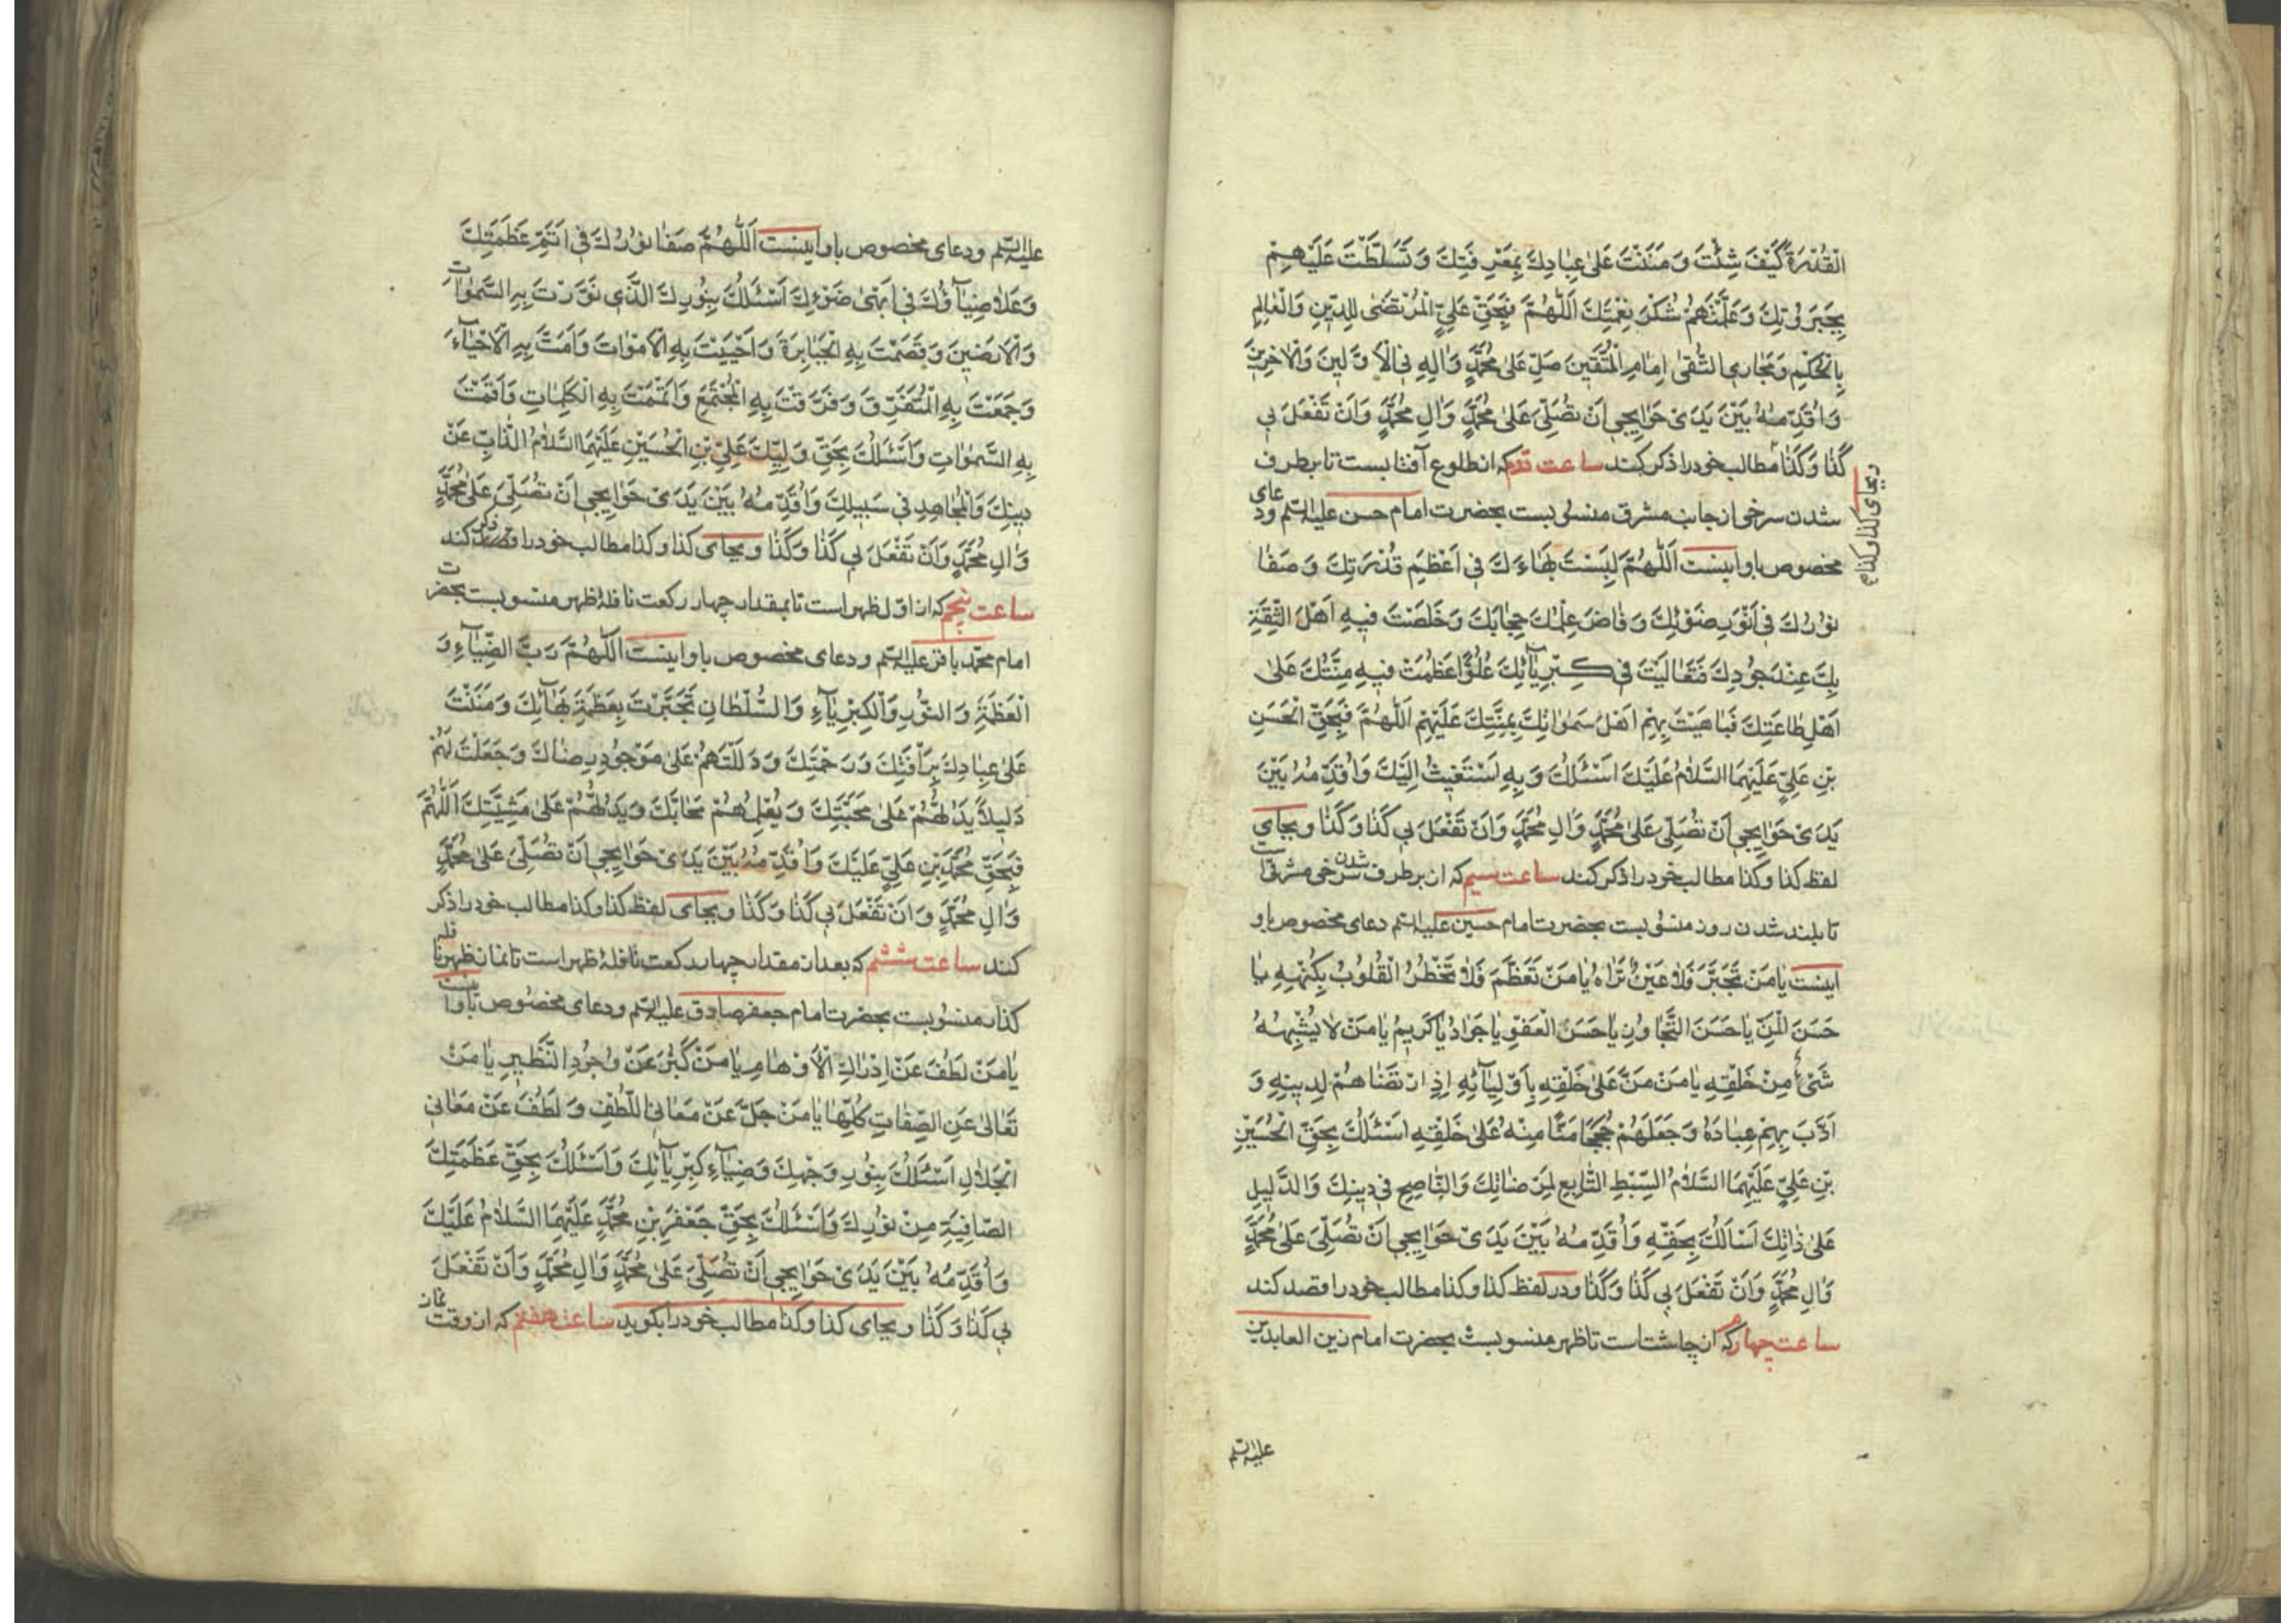 الْقُدْرَةُ كَيْفَ شِئْتَ وَ مَنَنْتَ عَلىٰ عِبَادِكَ بِمَعْرِفَتِكَ وَ تَسَلَّطْتَ عَلَيْهِمْ
بِجَبَرُوتِكَ وَ عَلَّمْتَهُمْ شُكْرَ نِعْمَتِكَ اَللّٰهُمَّ فَبِحَقِّ عَلِيٍّ الْمُرْتَضىٰ لِلدّينِ وَالْعَالِمِ
بِالْحُكْمِ وَ مَجَارِي التُّقىٰ اِمَامِ الْمُتَّقينَ صَلِّ عَلىٰ مُحَمَّدٍ وَ اٰلِهِ فِي الْاَوَّلينَ وَالْاٰخِرينَ
وَ اُقَدِّمُهُ بَيْنَ يَدَيْ حَوَايِجي اَنْ تُصَلِّيَ عَلىٰ مُحَمَّدٍ وَ اٰلِ مُحَمَّدٍ وَ اَنْ تَفْعَلَ بي
كَذَا وَ كَذَا مطالب خود را ذكر كند ساعت دوم كه از طلوع آفتابست تا برطرف
وبجاى كذا وكذا
شدن سرخى از جانب مشرق منسوبست بحضرت امام حسن عليه السلم ودعاى
مخصوص باو اينست اَللّٰهُمَّ لَبِسْتَ بَهَاءَكَ في اَعْظَمِ قُدْرَتِكَ وَ صَفَا
نُورُكَ في اَنْوَرِ ضَوْئِكَ وَ فَاضَ عِلْمُكَ حِجَابَكَ وَ خَلَّصْتَ فيهِ اَهْلَ الثِّقَةِ
بِكَ عِنْدَ جُودِكَ فَتَعَالَيْتَ في كِبْرِيَآئِكَ عُلُوًّا عَظُمَتْ فيهِ مِنَّتُكَ عَلىٰ
اَهْلِ طَاعَتِكَ فَبَاهَيْتَ بِهِمْ اَهْلَ سَمٰوَاتِكَ بِمِنَّتِكَ عَلَيْهِمْ اَللّٰهُمَّ فَبِحَقِّ الْحَسَنِ
بْنِ عَلِيٍّ عَلَيْهِمَا السَّلَامُ عَلَيْكَ اَسْئَلُكَ وَ بِهِ اَسْتَغيثُ اِلَيْكَ وَ اُقَدِّمُهُ بَيْنَ
يَدَيْ حَوَايِجي اَنْ تُصَلِّيَ عَلىٰ مُحَمَّدٍ وَ اٰلِ مُحَمَّدٍ وَ اَنْ تَفْعَلَ بي كَذَا وَ كَذَا وبجاى
لفظ كذا و كذا مطالب خود را ذكر كند ساعت سيم كه از برطرف شدن سرخى مشرقست
تا بلند شدن روز منسوبست بحضرت امام حسين عليه السلم دعاى مخصوص باو
اينست يَا مَنْ تَجَبَّرَ فَلَا عَيْنٌ تَرَاهُ يَا مَنْ تَعَظَّمَ فَلَا تَخْطُرُ الْقُلُوبُ بِكُنْهِهِ يَا
حَسَنَ الْمَنِّ يَا حَسَنَ التَّجَاوُزِ يَا حَسَنَ الْعَفْوِ يَا جَوَادُ يَا كَريمُ يَا مَنْ لَا يُشْبِهُهُ
شَيْءٌ مِنْ خَلْقِهِ يَا مَنْ مَنَّ عَلىٰ خَلْقِهِ بِاَوْلِيَآئِهِ اِذِ ارْتَضَاهُمْ لِدينِهِ وَ
اَدَّبَ بِهِمْ عِبَادَهُ وَ جَعَلَهُمْ حُجَجًا مَنًّا مِنْهُ عَلىٰ خَلْقِهِ اَسْئَلُكَ بِحَقِّ الْحُسَيْنِ
بْنِ عَلِيٍّ عَلَيْهِمَا السَّلَامُ السِّبْطِ التَّابِعِ لِمَرْضَاتِكَ وَ النَّاصِحِ في دينِكَ وَ الدَّليلِ
عَلىٰ ذَاتِكَ اَسْأَلُكَ بِحَقِّهِ وَ اُقَدِّمُهُ بَيْنَ يَدَيْ حَوَايِجي اَنْ تُصَلِّيَ عَلىٰ مُحَمَّدٍ
وَ اٰلِ مُحَمَّدٍ وَ اَنْ تَفْعَلَ بي كَذَا وَ كَذَا و در لفظ كذا و كذا مطالب خود را قصد كند
ساعت چهارم كه از چاشتاست تا ظهر منسوبست بحضرت امام زين العابدين
عليه السلم
عليه السلم ودعاى مخصوص باو اينست اَللّٰهُمَّ صَفَا نُورُكَ في اَتَمِّ عَظَمَتِكَ
وَ عَلَا ضِيَآؤُكَ في اَبْهىٰ ضَوْئِكَ اَسْئَلُكَ بِنُورِكَ الَّذي نَوَّرْتَ بِهِ السَّمٰوَاتِ
وَ الْاَرَضينَ وَ قَصَمْتَ بِهِ الْجَبَابِرَةَ وَ اَحْيَيْتَ بِهِ الْاَمْوَاتَ وَ اَمَتَّ بِهِ الْاَحْيَآءَ
وَ جَمَعْتَ بِهِ الْمُتَفَرِّقَ وَ فَرَّقْتَ بِهِ الْمُجْتَمَعَ وَ اَتْمَمْتَ بِهِ الْكَلِمَاتِ وَ اَقَمْتَ
بِهِ السَّمٰوَاتِ وَ اَسْئَلُكَ بِحَقِّ وَلِيِّكَ عَلِيِّ بْنِ الْحُسَيْنِ عَلَيْهِمَا السَّلَامُ الذَّابِّ عَنْ
دينِكَ وَ الْمُجَاهِدِ في سَبيلِكَ وَ اُقَدِّمُهُ بَيْنَ يَدَيْ حَوَايِجي اَنْ تُصَلِّيَ عَلىٰ مُحَمَّدٍ
وَ اٰلِ مُحَمَّدٍ وَ اَنْ تَفْعَلَ بي كَذَا وَ كَذَا و بجاى كذا و كذا مطالب خود را ذكر كند
ساعت پنجم كه از اول ظهر است تا بمقدار چهار ركعت نافلهٔ ظهر منسوبست بحضرت
امام محمد باقر عليه السلم ودعاى مخصوص باو اينست اَللّٰهُمَّ رَبَّ الضِّيَآءِ وَ
الْعَظَمَةِ وَ النُّورِ وَ الْكِبْرِيَآءِ وَ السُّلْطَانِ تَجَبَّرْتَ بِعَظَمَةِ بَهَآئِكَ وَ مَنَنْتَ
عَلىٰ عِبَادِكَ بِرَأْفَتِكَ وَ رَحْمَتِكَ وَ دَلَلْتَهُمْ عَلىٰ مَوْجُودِ رِضَاكَ وَ جَعَلْتَ لَهُمْ
دَليلًا يَدُلُّهُمْ عَلىٰ مَحَبَّتِكَ وَ يُعَلِّمُهُمْ مَحَابَّكَ وَ يَدُلُّهُمْ عَلىٰ مَشِيَّتِكَ اَللّٰهُمَّ
فَبِحَقِّ مُحَمَّدِ بْنِ عَلِيٍّ عَلَيْكَ وَ اُقَدِّمُهُ بَيْنَ يَدَيْ حَوَايِجي اَنْ تُصَلِّيَ عَلىٰ مُحَمَّدٍ
وَ اٰلِ مُحَمَّدٍ وَ اَنْ تَفْعَلَ بي كَذَا وَ كَذَا و بجاى لفظ كذا و كذا مطالب خود را ذكر
كند ساعت ششم كه بعد از مقدار چهار ركعت نافلهٔ ظهر است تا نماز ظهر نا
كذار منسوبست بحضرت امام جعفر صادق عليه السلم ودعاى مخصوص باو اينست
يَا مَنْ لَطُفَ عَنْ اِدْرَاكِ الْاَوْهَامِ يَا مَنْ كَبُرَ عَنْ وُجُودِ النَّظيرِ يَا مَنْ
تَعَالىٰ عَنِ الصِّفَاتِ كُلِّهَا يَا مَنْ جَلَّ عَنْ مَعَانِي اللُّطْفِ وَ لَطُفَ عَنْ مَعَانِي
الْجَلَالِ اَسْئَلُكَ بِنُورِ وَجْهِكَ وَ ضِيَآءِ كِبْرِيَآئِكَ وَ اَسْئَلُكَ بِحَقِّ عَظَمَتِكَ
الصَّافِيَةِ مِنْ نُورِكَ وَ اَسْئَلُكَ بِحَقِّ جَعْفَرِ بْنِ مُحَمَّدٍ عَلَيْهِمَا السَّلَامُ عَلَيْكَ
وَ اُقَدِّمُهُ بَيْنَ يَدَيْ حَوَايِجي اَنْ تُصَلِّيَ عَلىٰ مُحَمَّدٍ وَ اٰلِ مُحَمَّدٍ وَ اَنْ تَفْعَلَ
بي كَذَا وَ كَذَا و بجاى كذا و كذا مطالب خود را بگويد ساعت هفتم كه از وقت نماز